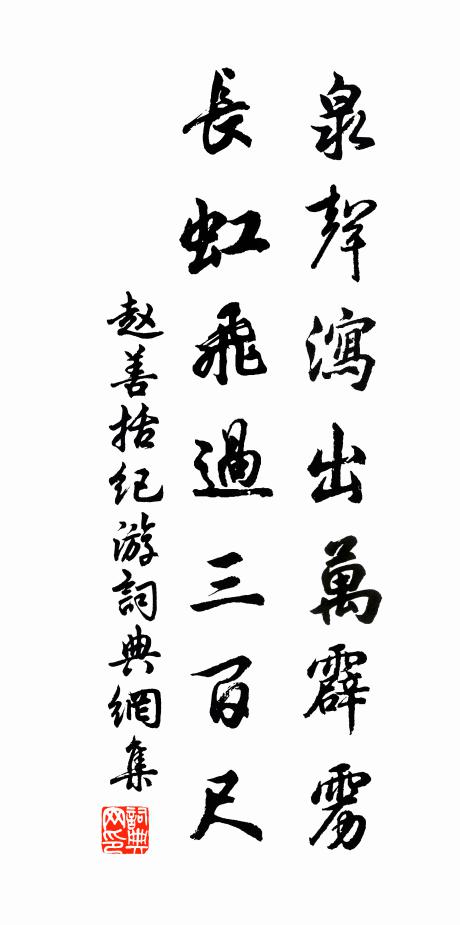 泉聲瀉出萬霹雳
長虹飛過三百尺
赵善括纪游詞典網集
詞典网印